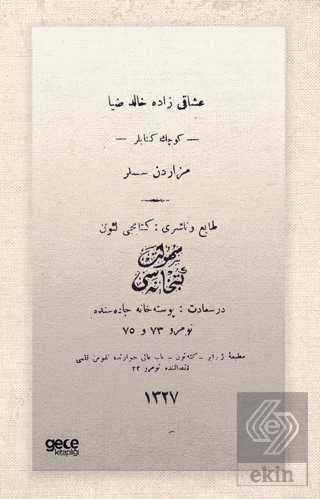 عشاقی زاده خالد ضیا
— كوچك كتابلر —
مزاردن سسلر
طابع و ناشری : كتابجی لئون
سهولت
كتبخانه سی
درسعادت : پوسته خانه جاده سنده
نومرو ۷۳ و ۷۵
مطبعۀ ژ رایر - كته نون - باب عالی جوارنده
نومرو ۲۲
۱۳۲۷
gece
kitaplığı
ekin